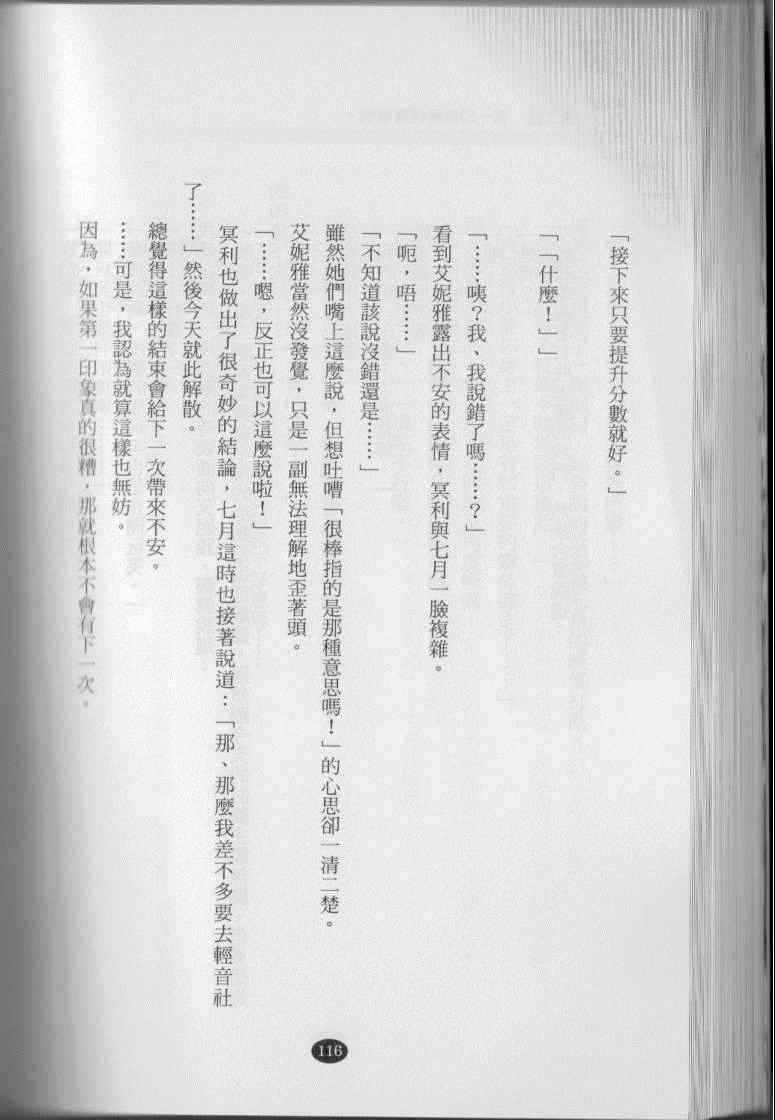 「接下來只要提升分數就好。」
「「什麼！」」
「……咦？我、我說錯了嗎……？」
看到艾妮雅露出不安的表情，冥利與七月一臉複雜。
「呃，唔……」
「不知道該說沒錯還是……」
雖然她們嘴上這麼說，但想吐嘈「很棒指的是那種意思嗎！」的心思卻一清二楚。
艾妮雅當然沒發覺，只是一副無法理解地歪著頭。
「……嗯，反正也可以這麼說啦！」
冥利也做出了很奇妙的結論，七月這時也接著說道：「那、那麼我差不多要去輕音社
了……」然後今天就此解散。
總覺得這樣的結束會給下一次帶來不安。
……可是，我認為就算這樣也無妨。
因為，如果第一印象真的很糟，那就根本不會有下一次。
116